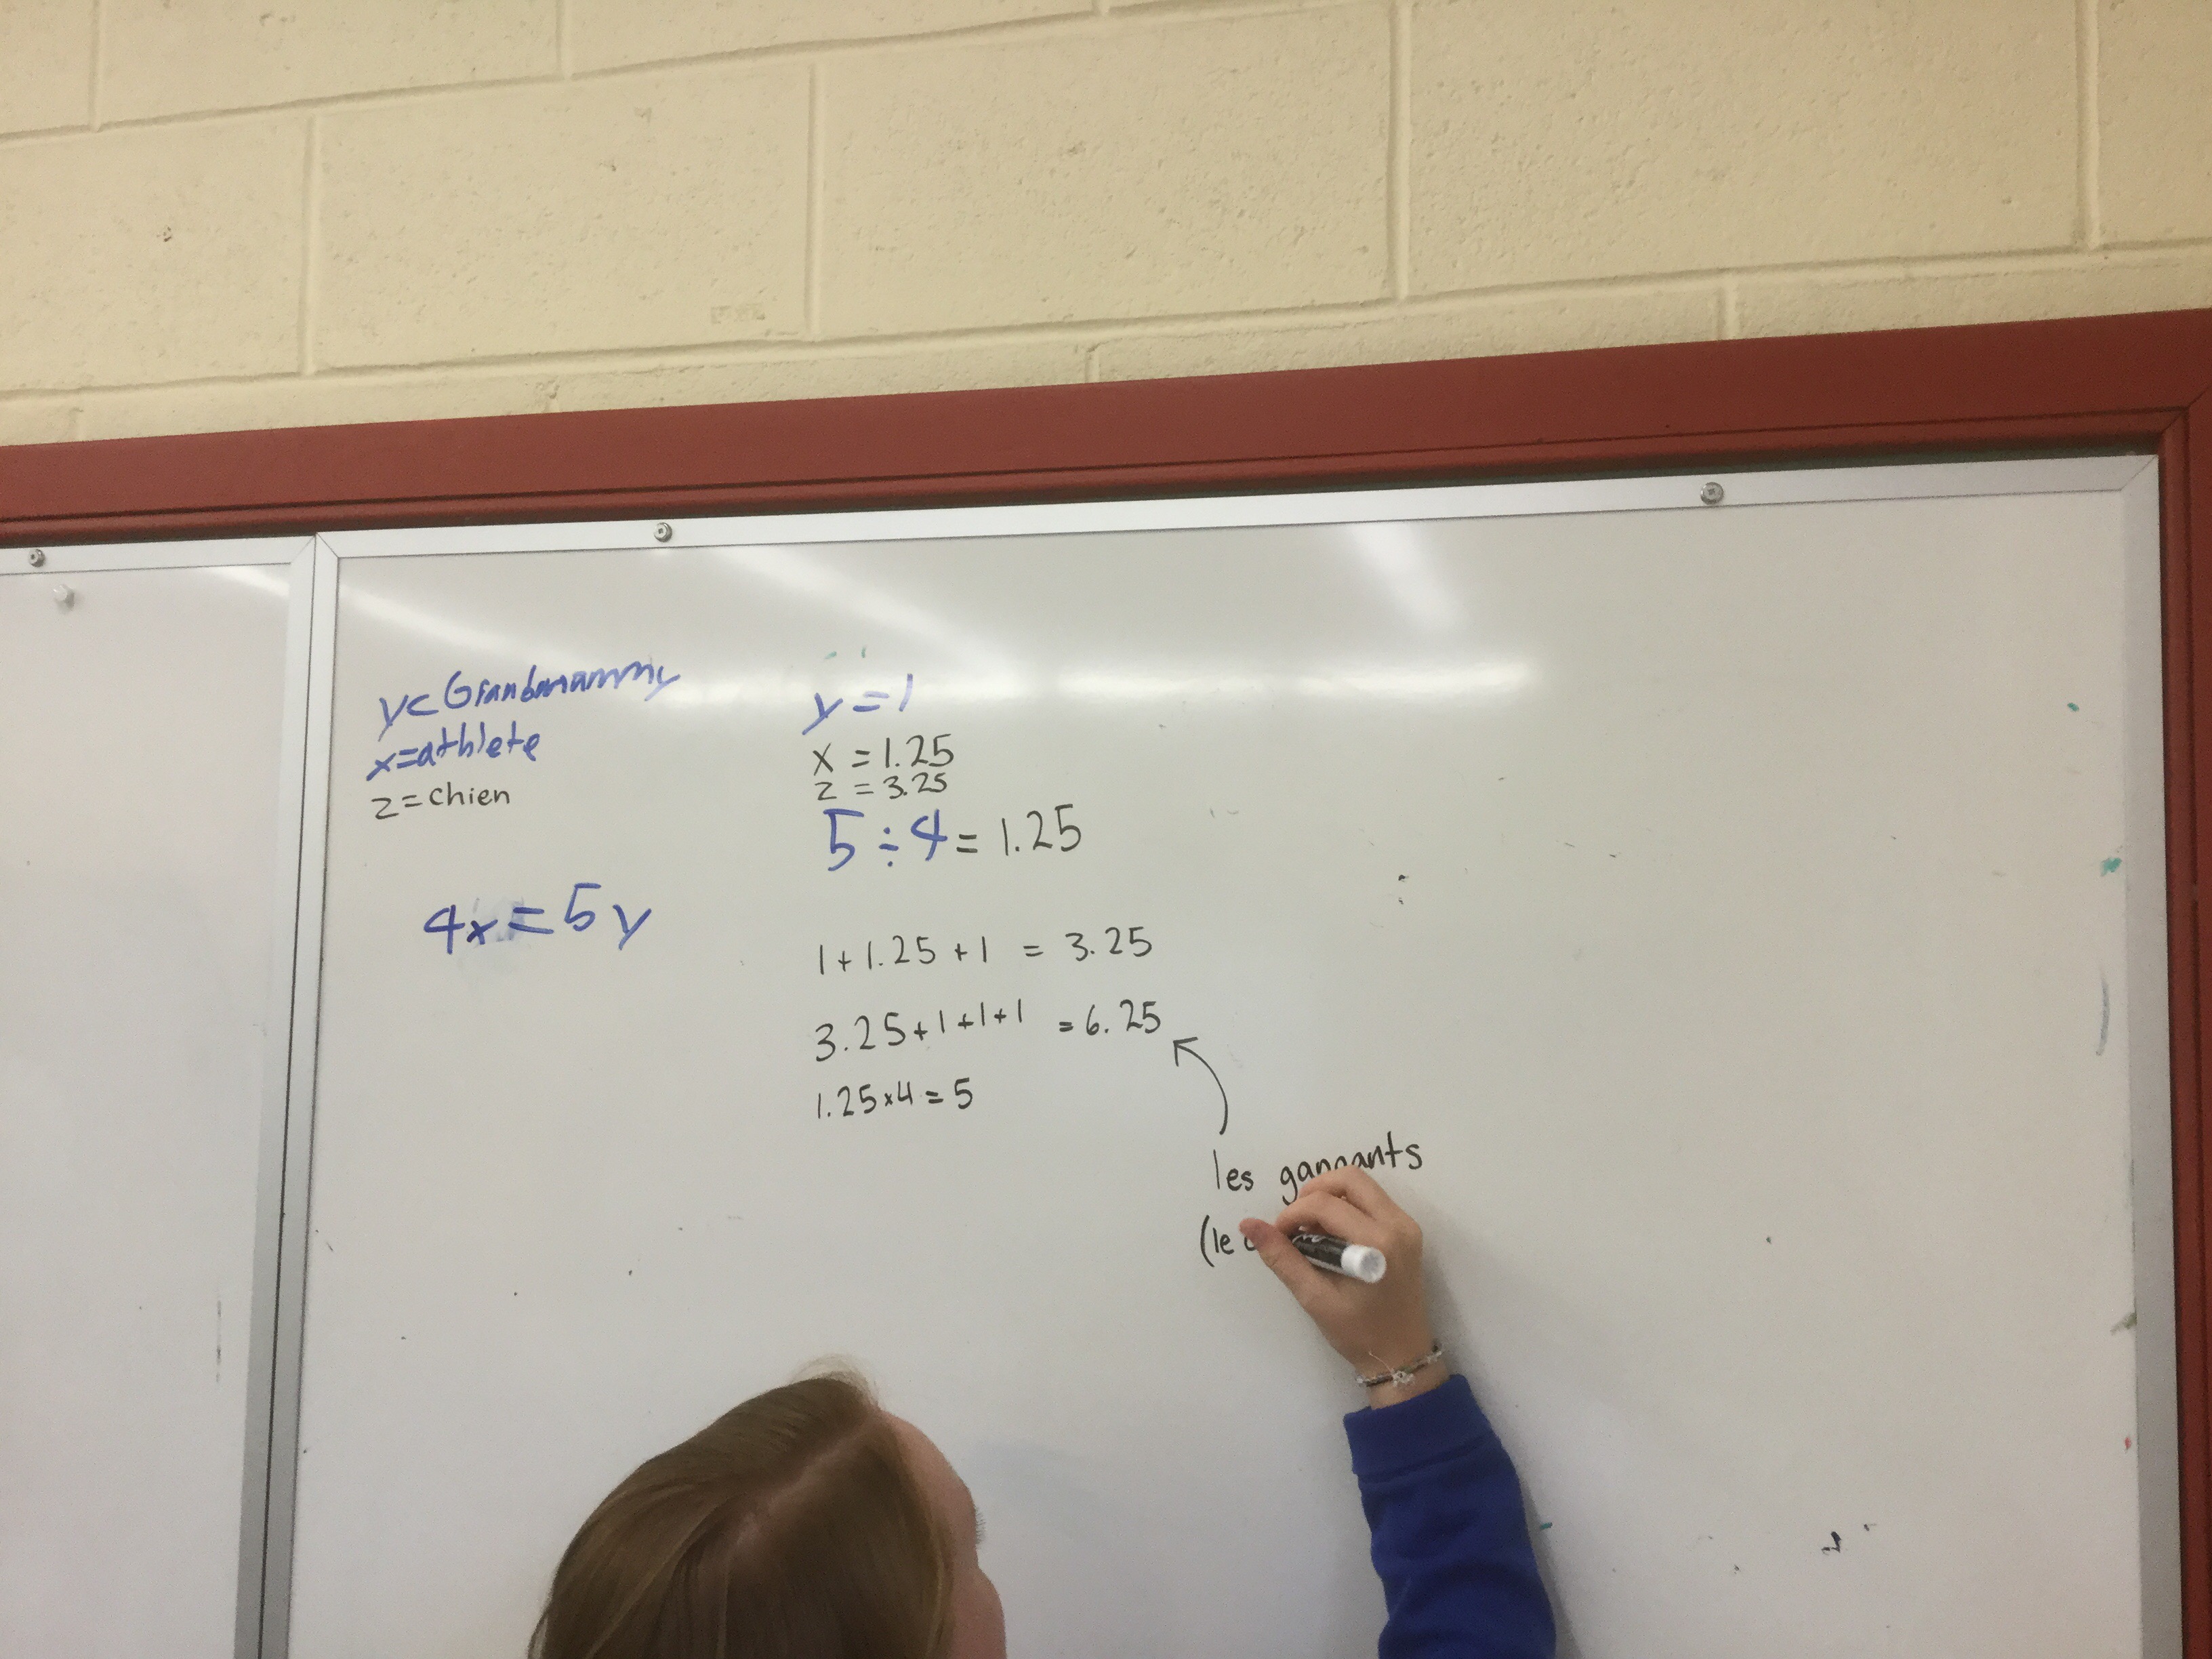 y= Grandmammy
x=athlete
z=chien
4x=5y
y=1
x=1.25
z=3.25
5÷4=1.25
1+1.25+1=3.25
3.25+1+1+1=6.25
1.25×4=5
les gangants
(le